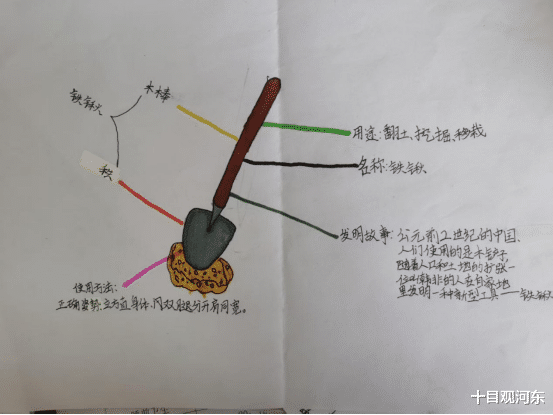 木棒
铁锹
用途:翻土、挖掘、种栽
名称:铁锹
发明故事:公元前2世纪的中国,
人们使用的是木铲子
随着人口和土地的扩张一
位叫韩非的人在自家地
里发明一种新型工具——铁锹
使用方法:
正确姿势,立方直身体,双腿分开肩同宽。
十目观河东